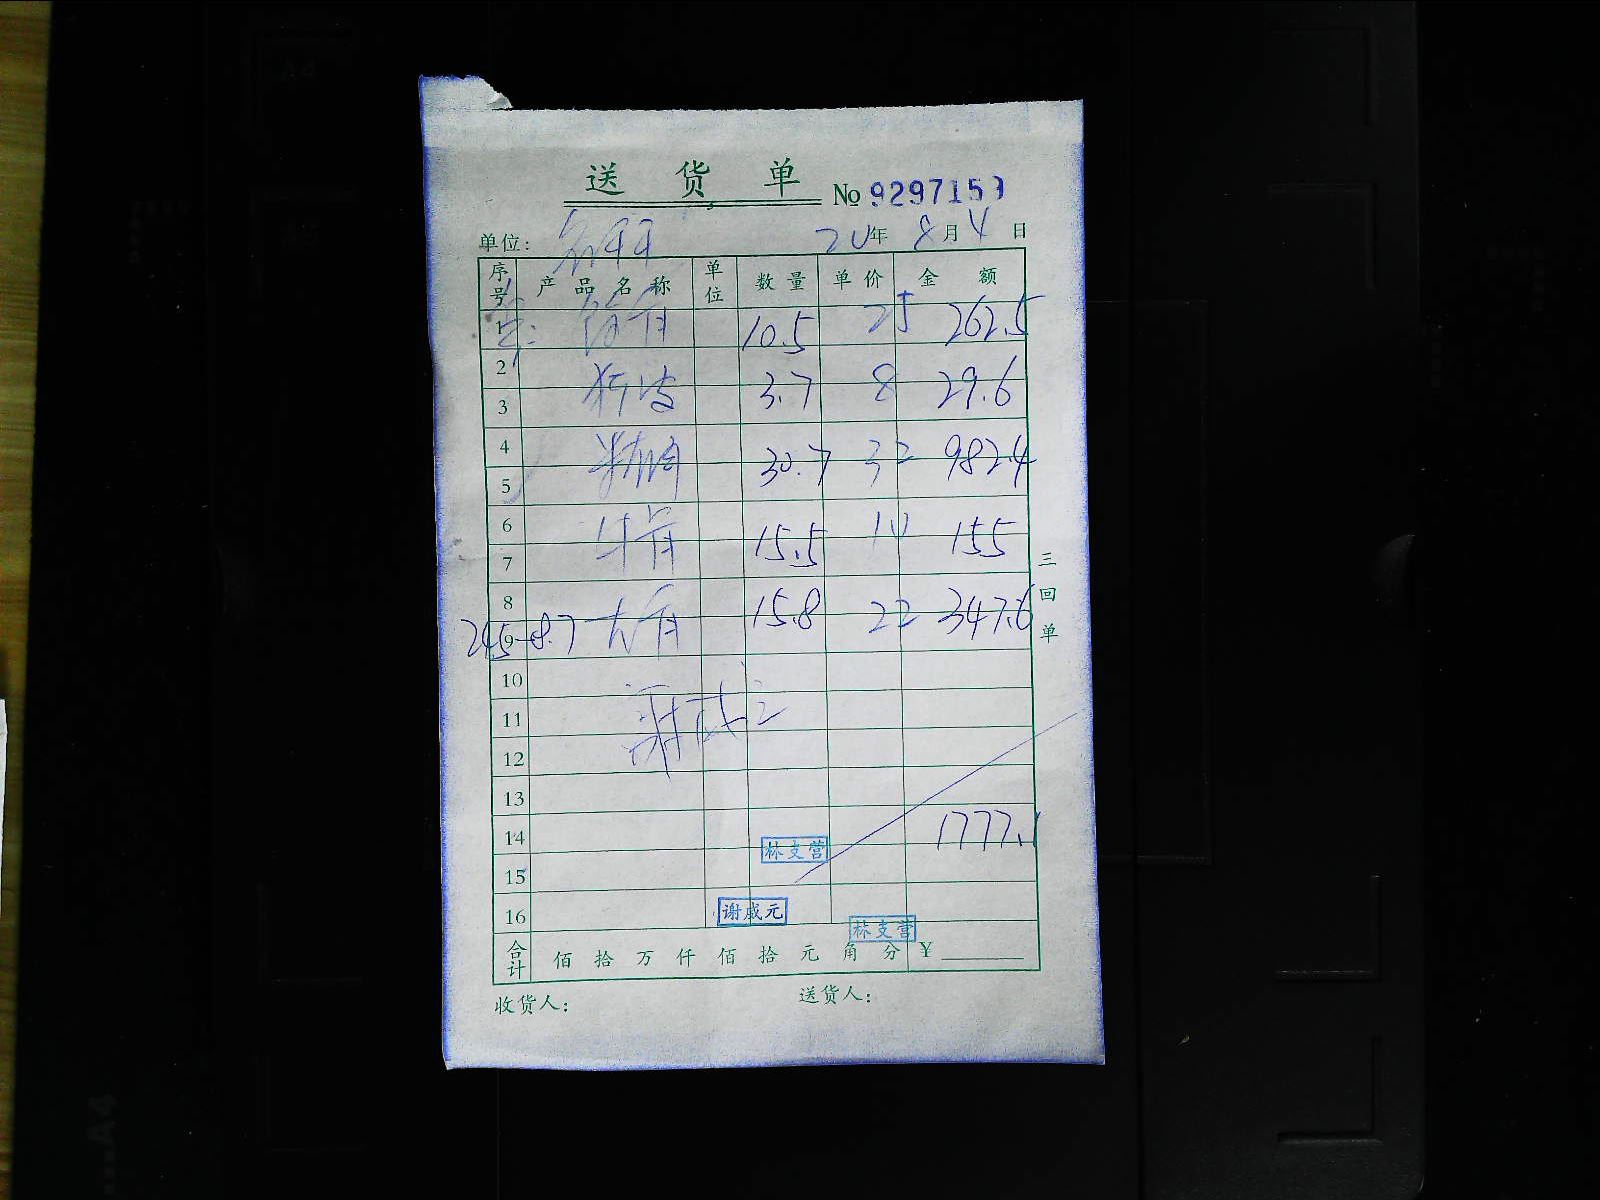 送货单 No 9297159
单位: 20年 8月 4日
序号 产品名称 单位 数量 单价 金额
1 10.5 25 262.5
2
3 3.7 8 29.6
4
5 30.7 32 982.4
6
7 牛骨 15.5 10 155
8
9 24.5-8.7 大骨 15.8 22 347.6
10
11 谢成元
12
13
14 1777.1
林支营
15
16 谢成元
林支营
合计 佰 拾 万 仟 佰 拾 元 角 分 ¥
收货人: 送货人:
三回单